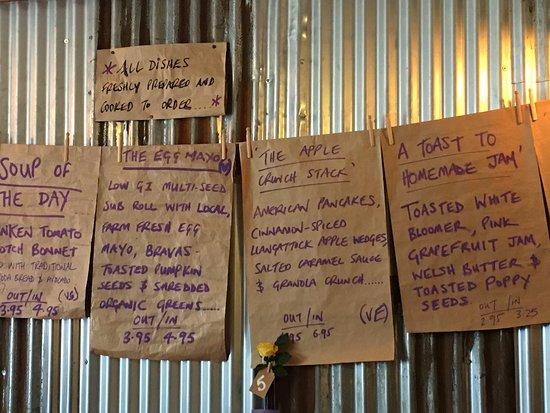 *ALL DISHES
FRESHLY PREPARED AND
COOKED TO ORDER....*
SOUP OF
THE DAY
TOMATO
BONNET
WITH TRADITIONAL
BREAD & AVOCADO
OUT/IN
3.95 4.95
(VE)
THE EGG MAYO
LOW GI MULTI-SEED
SUB ROLL WITH LOCAL,
FARM FRESH EGG
MAYO, BRAVAS-
TOASTED PUMPKIN
SEEDS & SHREDDED
ORGANIC GREENS.....
OUT/IN
3.95 4.95
'THE APPLE
CRUNCH STACK'
AMERICAN PANCAKES,
CINNAMON-SPICED
LLANGATTOCK APPLE WEDGES,
SALTED CARAMEL SAUCE
& GRANOLA CRUNCH.....
OUT/IN
5.95 6.95
(VE)
A TOAST TO
HOMEMADE JAM'
TOASTED WHITE
BLOOMER, PINK
GRAPEFRUIT JAM,
WELSH BUTTER &
TOASTED POPPY
SEEDS
OUT/IN
2.95 3.25
5